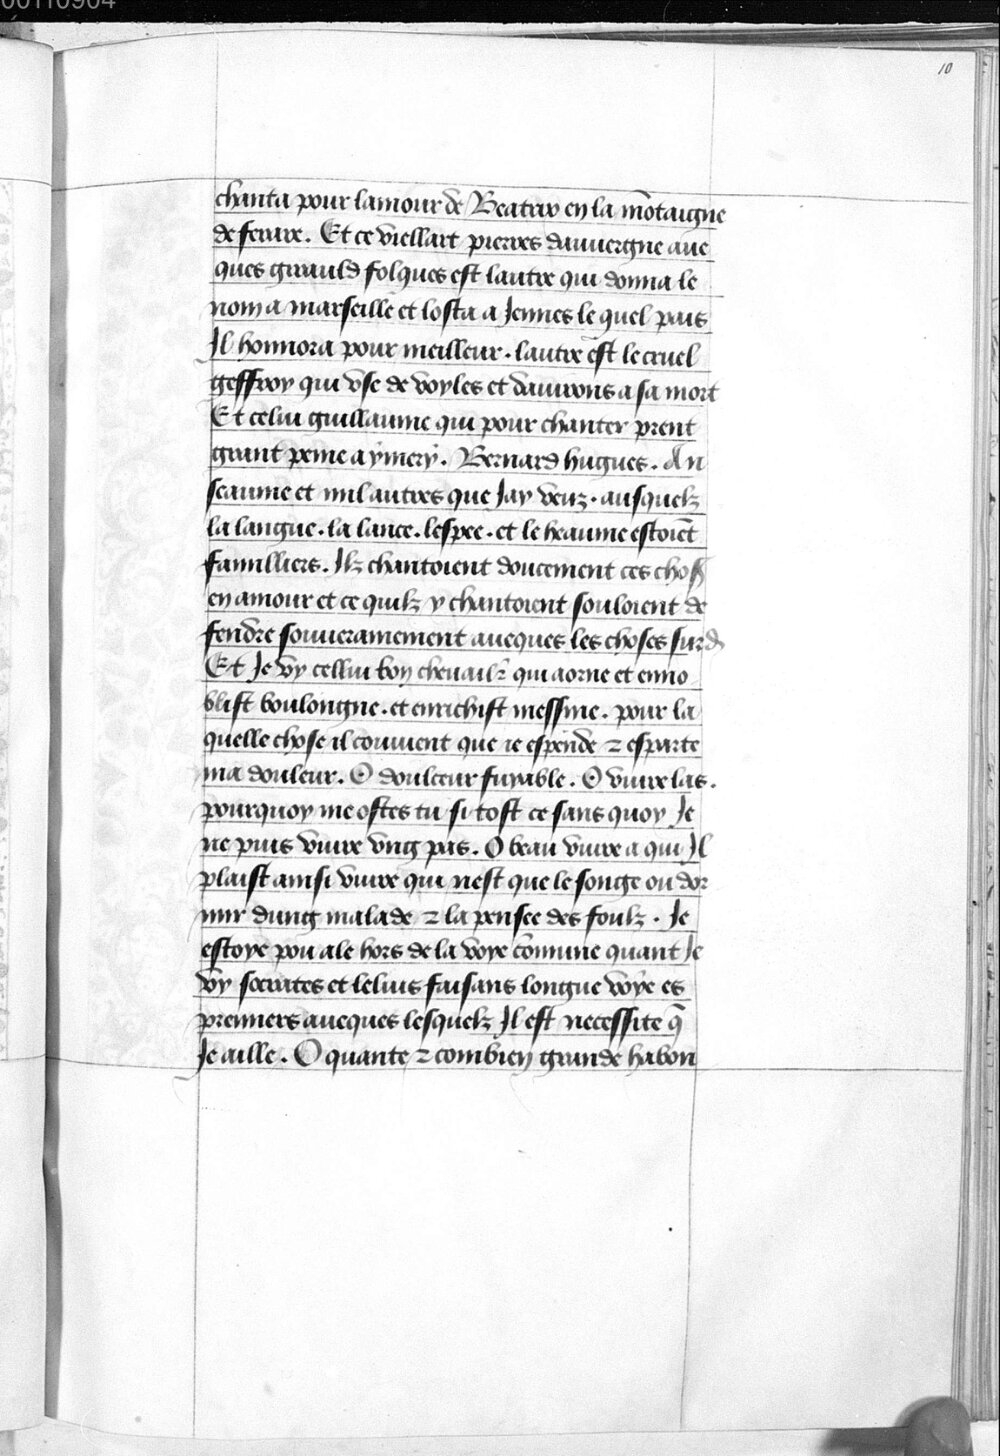 00110904
10
chanta pour lamour de Beatrix en la mōtaigne
de ferrare. Et ce viellart pierres dauuergne aue
ques girauld folques est lautre qui donna le
nom a marseille et losta a Jennes le quel pais
Il honnora pour meilleur. lautre est le cruel
geffroy qui vse de voyles et dauirons a sa mort
Et celui guillaume qui pour chanter prent
grant peine aymery. Bernard hugues. An
seaume et mil autres que Jay veuz. ausquelz
la langue. la lance. lespee. et le heaume estoiēt
familliers. Ilz chantoient doucement ces choses
en amour et ce quilz y chantoient souloient de
fendre souuerainement aueques les choses surd
Et Je vy cellui bon cheualr̄ qui aorne et enno
blist boulongne. et enrichist messine. pour la
quelle chose il conuient que ie espende ⁊ esparte
ma douleur. O doulceur fuyable. O viure las.
pourquoy me ostes tu si tost ce sans quoy Je
ne puis viure vng pas. O beau viure a qui Il
plaist ainsi viure qui nest que le songe ou dor
mir dung malade ⁊ la pensee des foulz. Je
estoye pou ale hors de la voye cōmune quant Je
vy socrates et lelius faisans longue voye es
premiers aueques lesquelz Il est necessite q̄
Je aille. O quante ⁊ combien grande habon